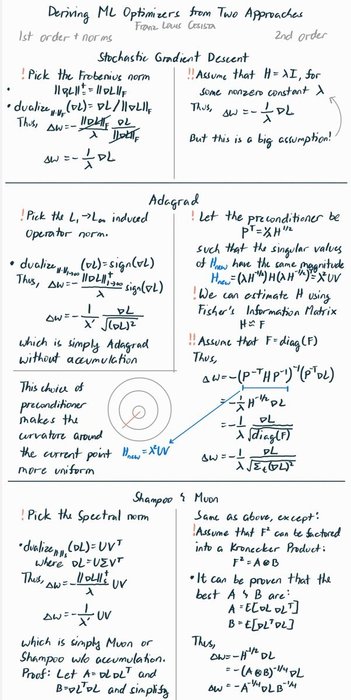 Deriving ML Optimizers from Two Approaches
Franz Louis Cesista
1st order + norms
2nd order
Stochastic Gradient Descent
! Pick the Frobenius norm
• ||∇L||_F^† = ||∇L||_F
• dualize_{||·||_F}(∇L) = ∇L/||∇L||_F
Thus, ΔW = - ||∇L||_F/λ ∇L/||∇L||_F
ΔW = - 1/λ ∇L
!! Assume that H = λI, for
some nonzero constant λ
Thus,
ΔW = - 1/λ ∇L
But this is a big assumption!
Adagrad
! Pick the L₁→L∞ induced
Operator norm.
• dualize_{||·||1→∞}(∇L) = sign(∇L)
Thus, ΔW = - ||∇L||^†_{1→∞}/λ sign(∇L)
ΔW = - 1/λ' ∇L/√(∇L)²
which is simply Adagrad
without accumulation
This choice of
preconditioner
makes the
curvature around
the current point
more uniform
H_new = λ²UV
! Let the preconditioner be
P^T = 1/λ H^{1/2}
such that the singular values
of H_new have the same magnitude
H_new = (λH^{-1/2})H(λH^{-1/2}) = λ²UV
! We can estimate H using
Fisher's Information Matrix
H ≈ F
!! Assume that F = diag(F)
Thus,
ΔW = -(P^{-T}HP^{-1})^{-1}(P^{-T}∇L)
= - 1/λ H^{-1/2}∇L
= - 1/λ ∇L/√diag(F)
ΔW = - 1/λ ∇L/√Σ_t(∇L)²
Shampoo & Muon
! Pick the Spectral norm
• dualize_{||·||}(∇L) = UV^T
where ∇L = UΣV^T
Thus, ΔW = - ||∇L||^†/λ UV
ΔW = - 1/λ' UV
which is simply Muon or
Shampoo w/o accumulation.
Proof: Let A = ∇L∇L^T and
B = ∇L^T∇L and simplify
Same as above, except:
! Assume that F² can be factored
into a Kronecker Product:
F² = A⊗B
• It can be proven that the
best A & B are:
A = E[∇L∇L^T]
B = E[∇L^T∇L]
Thus,
ΔW = -H^{-1/2}∇L
= -(A⊗B)^{-1/4}∇L
ΔW = -A^{-1/4}∇LB^{-1/4}